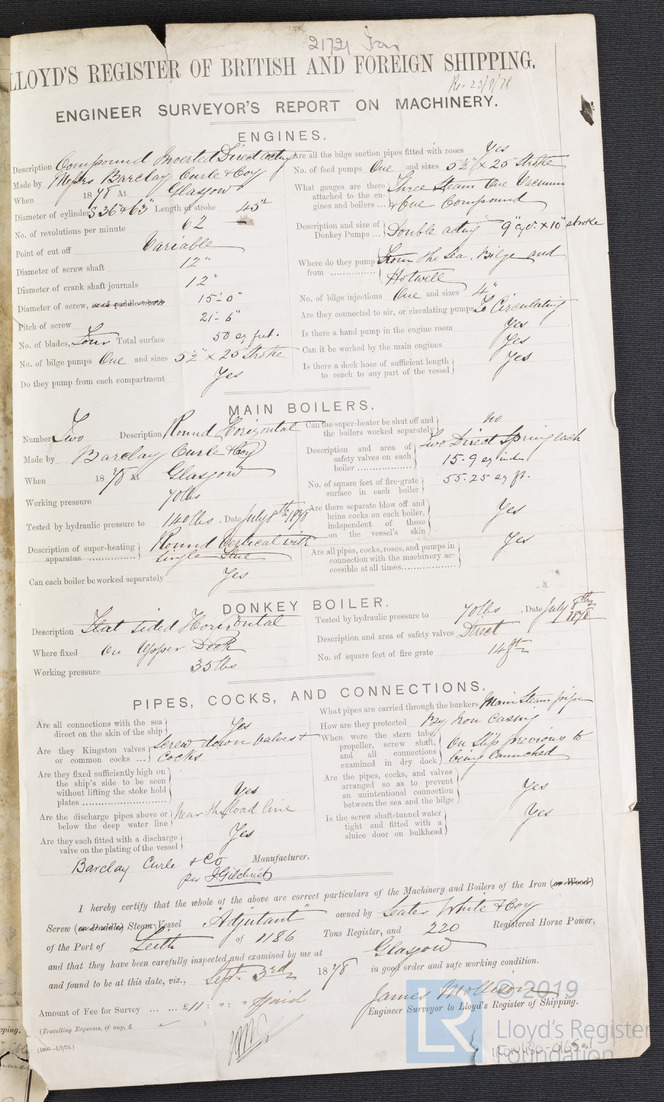 21721 Iron
LLOYD'S REGISTER OF BRITISH AND FOREIGN SHIPPING.
Rec 23/9/78
ENGINEER SURVEYOR'S REPORT ON MACHINERY.
ENGINES.
Description Compound Inverted Direct acting
Made by Messrs Barclay Curle & Coy
When 1878 At Glasgow
Diameter of cylinders 36" & 63" Length of stroke 45"
No. of revolutions per minute 62
Point of cut off Variable
Diameter of screw shaft 12"
Diameter of crank shaft journals 12"
Diameter of screw, and paddle wheels 15'-0"
Pitch of screw 21'-6"
No. of blades, Four Total surface 50 sq feet.
No. of bilge pumps One and sizes 5½" x 25 Stroke
Do they pump from each compartment Yes
Are all the bilge suction pipes fitted with roses Yes
No. of feed pumps One and sizes 5½" x 25 Stroke
What gauges are there attached to the engines and boilers ... Three Steam One Vacuum & One Compound
Description and size of Donkey Pumps ... Double acting 9" cyl. x 10" stroke
Where do they pump from ............ From the Sea, Bilge and Hotwell
No. of bilge injections One and sizes 4"
Are they connected to air, or circulating pumps To Circulating
Is there a hand pump in the engine room Yes
Can it be worked by the main engines Yes
Is there a deck hose of sufficient length to reach to any part of the vessel Yes
MAIN BOILERS.
Number Two Description Round Horizontal
Made by Barclay Curle & Coy
When 1878 At Glasgow
Working pressure 70 lbs
Tested by hydraulic pressure to 140 lbs. Date July 8th 1878
Description of super-heating apparatus .............. Round Vertical with single flue
Can each boiler be worked separately Yes
Can the super-heater be shut off and the boilers worked separately No
Description and area of safety valves on each boiler ................. Two Direct Spring each 15.9 sq ins
No. of square feet of fire-grate surface in each boiler 55.25 sq ft.
Are there separate blow off and brine cocks on each boiler, independent of those on the vessel's skin Yes
Are all pipes, cocks, roses, and pumps in connection with the machinery accessible at all times............ Yes
DONKEY BOILER.
Description Flat sided Horizontal
Where fixed On Upper Deck
Working pressure 35 lbs
Tested by hydraulic pressure to 70 lbs. Date July 8th 1878
Description and area of safety valves Direct
No. of square feet of fire grate 14 ft
PIPES, COCKS, AND CONNECTIONS.
Are all connections with the sea direct on the skin of the ship Yes
Are they Kingston valves or common cocks ... Screw down valves & Cocks
Are they fixed sufficiently high on the ship's side to be seen without lifting the stoke hold plates ..................... Yes
Are the discharge pipes above or below the deep water line Near the load line
Are they each fitted with a discharge valve on the plating of the vessel Yes
What pipes are carried through the bunkers Main Steam pipe
How are they protected By Iron casing
When were the stern tube, propeller, screw shaft, and all connections examined in dry dock On slip previous to being launched
Are the pipes, cocks, and valves arranged so as to prevent an unintentional connection between the sea and the bilge Yes
Is the screw shaft-tunnel water tight and fitted with a sluice door on bulkhead Yes
Barclay Curle & Co Manufacturer.
per J Gilchrist
I hereby certify that the whole of the above are correct particulars of the Machinery and Boilers of the Iron (or Wood)
Screw (or Paddle) Steam Vessel "Adjutant" owned by Leater White & Coy
of the Port of Leith of 1186 Tons Register, and 220 Registered Horse Power,
and that they have been carefully inspected and examined by me at Glasgow
and found to be at this date, viz., Sept. 3rd 1878 in good order and safe working condition.
Amount of Fee for Survey ... ... £11 : " : " paid James Mollison
Engineer Surveyor to Lloyd's Register of Shipping.
(Travelling Expenses, if any, £
© 2019
LR Lloyd's Register
Foundation